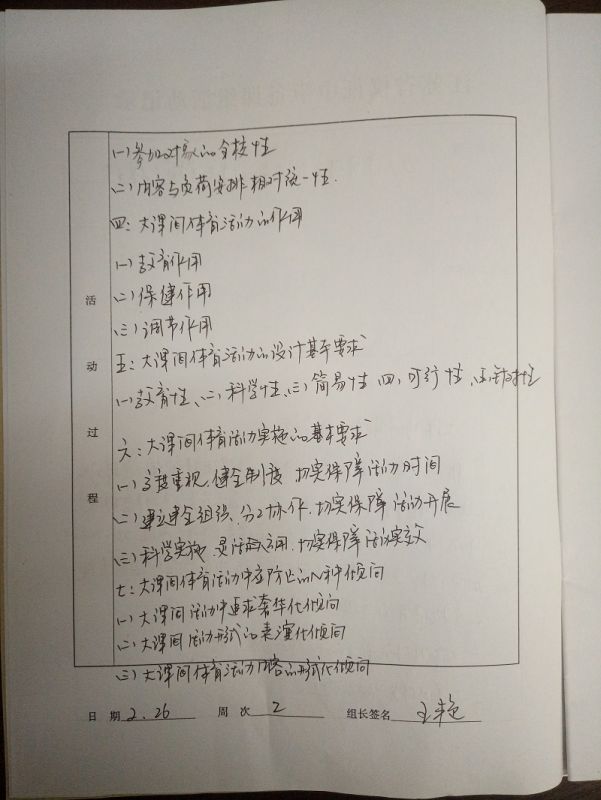 (一)参加对象的全校性
(二)内容与负荷安排相对统一性.
四:大课间体育活动的作用
(一)教育作用
(二)保健作用
(三)调节作用
五:大课间体育活动的设计基本要求
(一)教育性、(二)科学性、(三)简易性 四、可行性、(五)针对性
六:大课间体育活动实施的基本要求
(一)高度重视、健全制度 切实保障活动时间
(二)建立健全组织、分工协作、切实保障活动开展
(三)科学实施、灵活运用、切实保障活动实效
七:大课间体育活动中应防止的几种倾向
(一)大课间活动中追求奢华化倾向
(二)大课间活动形式的表演化倾向
(三)大课间体育活动内容的形式化倾向
活动过程
日 期 2.26 周 次 2 组长签名 王艳